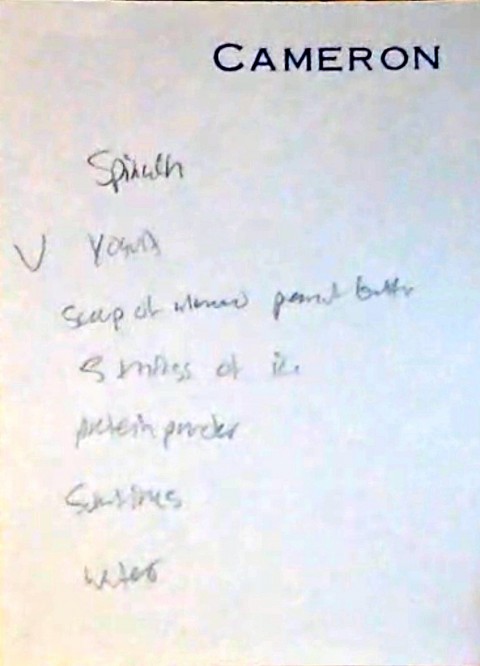 CAMERON
Spinach
V Yogurt
Scoop of peanut butter
of ice
protein powder
Sardines
water